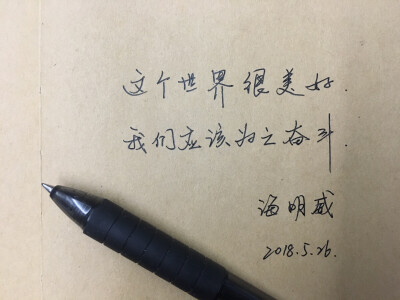 这个世界很美好.
我们应该为之奋斗.
海明威
2018.5.26.